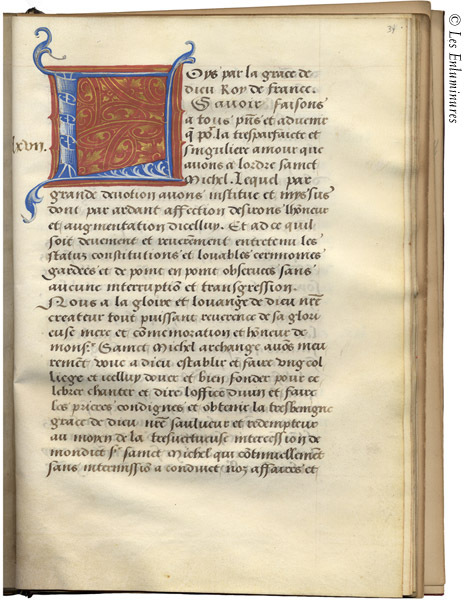 34
Loys par la grace de
dieu Roy de france.
Savoir faisons
a tous pñs et advenir
q̃ po.r la tresparfaicte et
singuliere amour que
lxvii.
avons a lordre sainct
Michel. Lequel par
grande devotion avons institue et mys sus
dont par ardant affection desirons lhõneur
et augmentation dicelluy. Et ad ce quil
soit deuement et reveremment entretenu les
status constitutions et louables cerimonies
gardees et de point en point observees sans
aucune interruptiõ et transgression.
Nous a la gloire et louange de dieu nr̃e
createur tout puissant reverence de sa glori
euse mere et cõmemoration et hõneur de
mons.r Sainct Michel archange avõs meu
rement voue a dieu establir et faire ung col
liege et icelluy douer et bien fonder pour ce
lebrer chanter et dire loffice divin et faire
les prieres condignes et obtenir la tresbenigne
grace de dieu nr̃e saulueur et redempteur
au moyen de la tresvertueuse intercession de
mondict s.r sainct Michel qui cõtinuellement
sans intermissiõ a conduict noz affaires et
© Les Enluminures